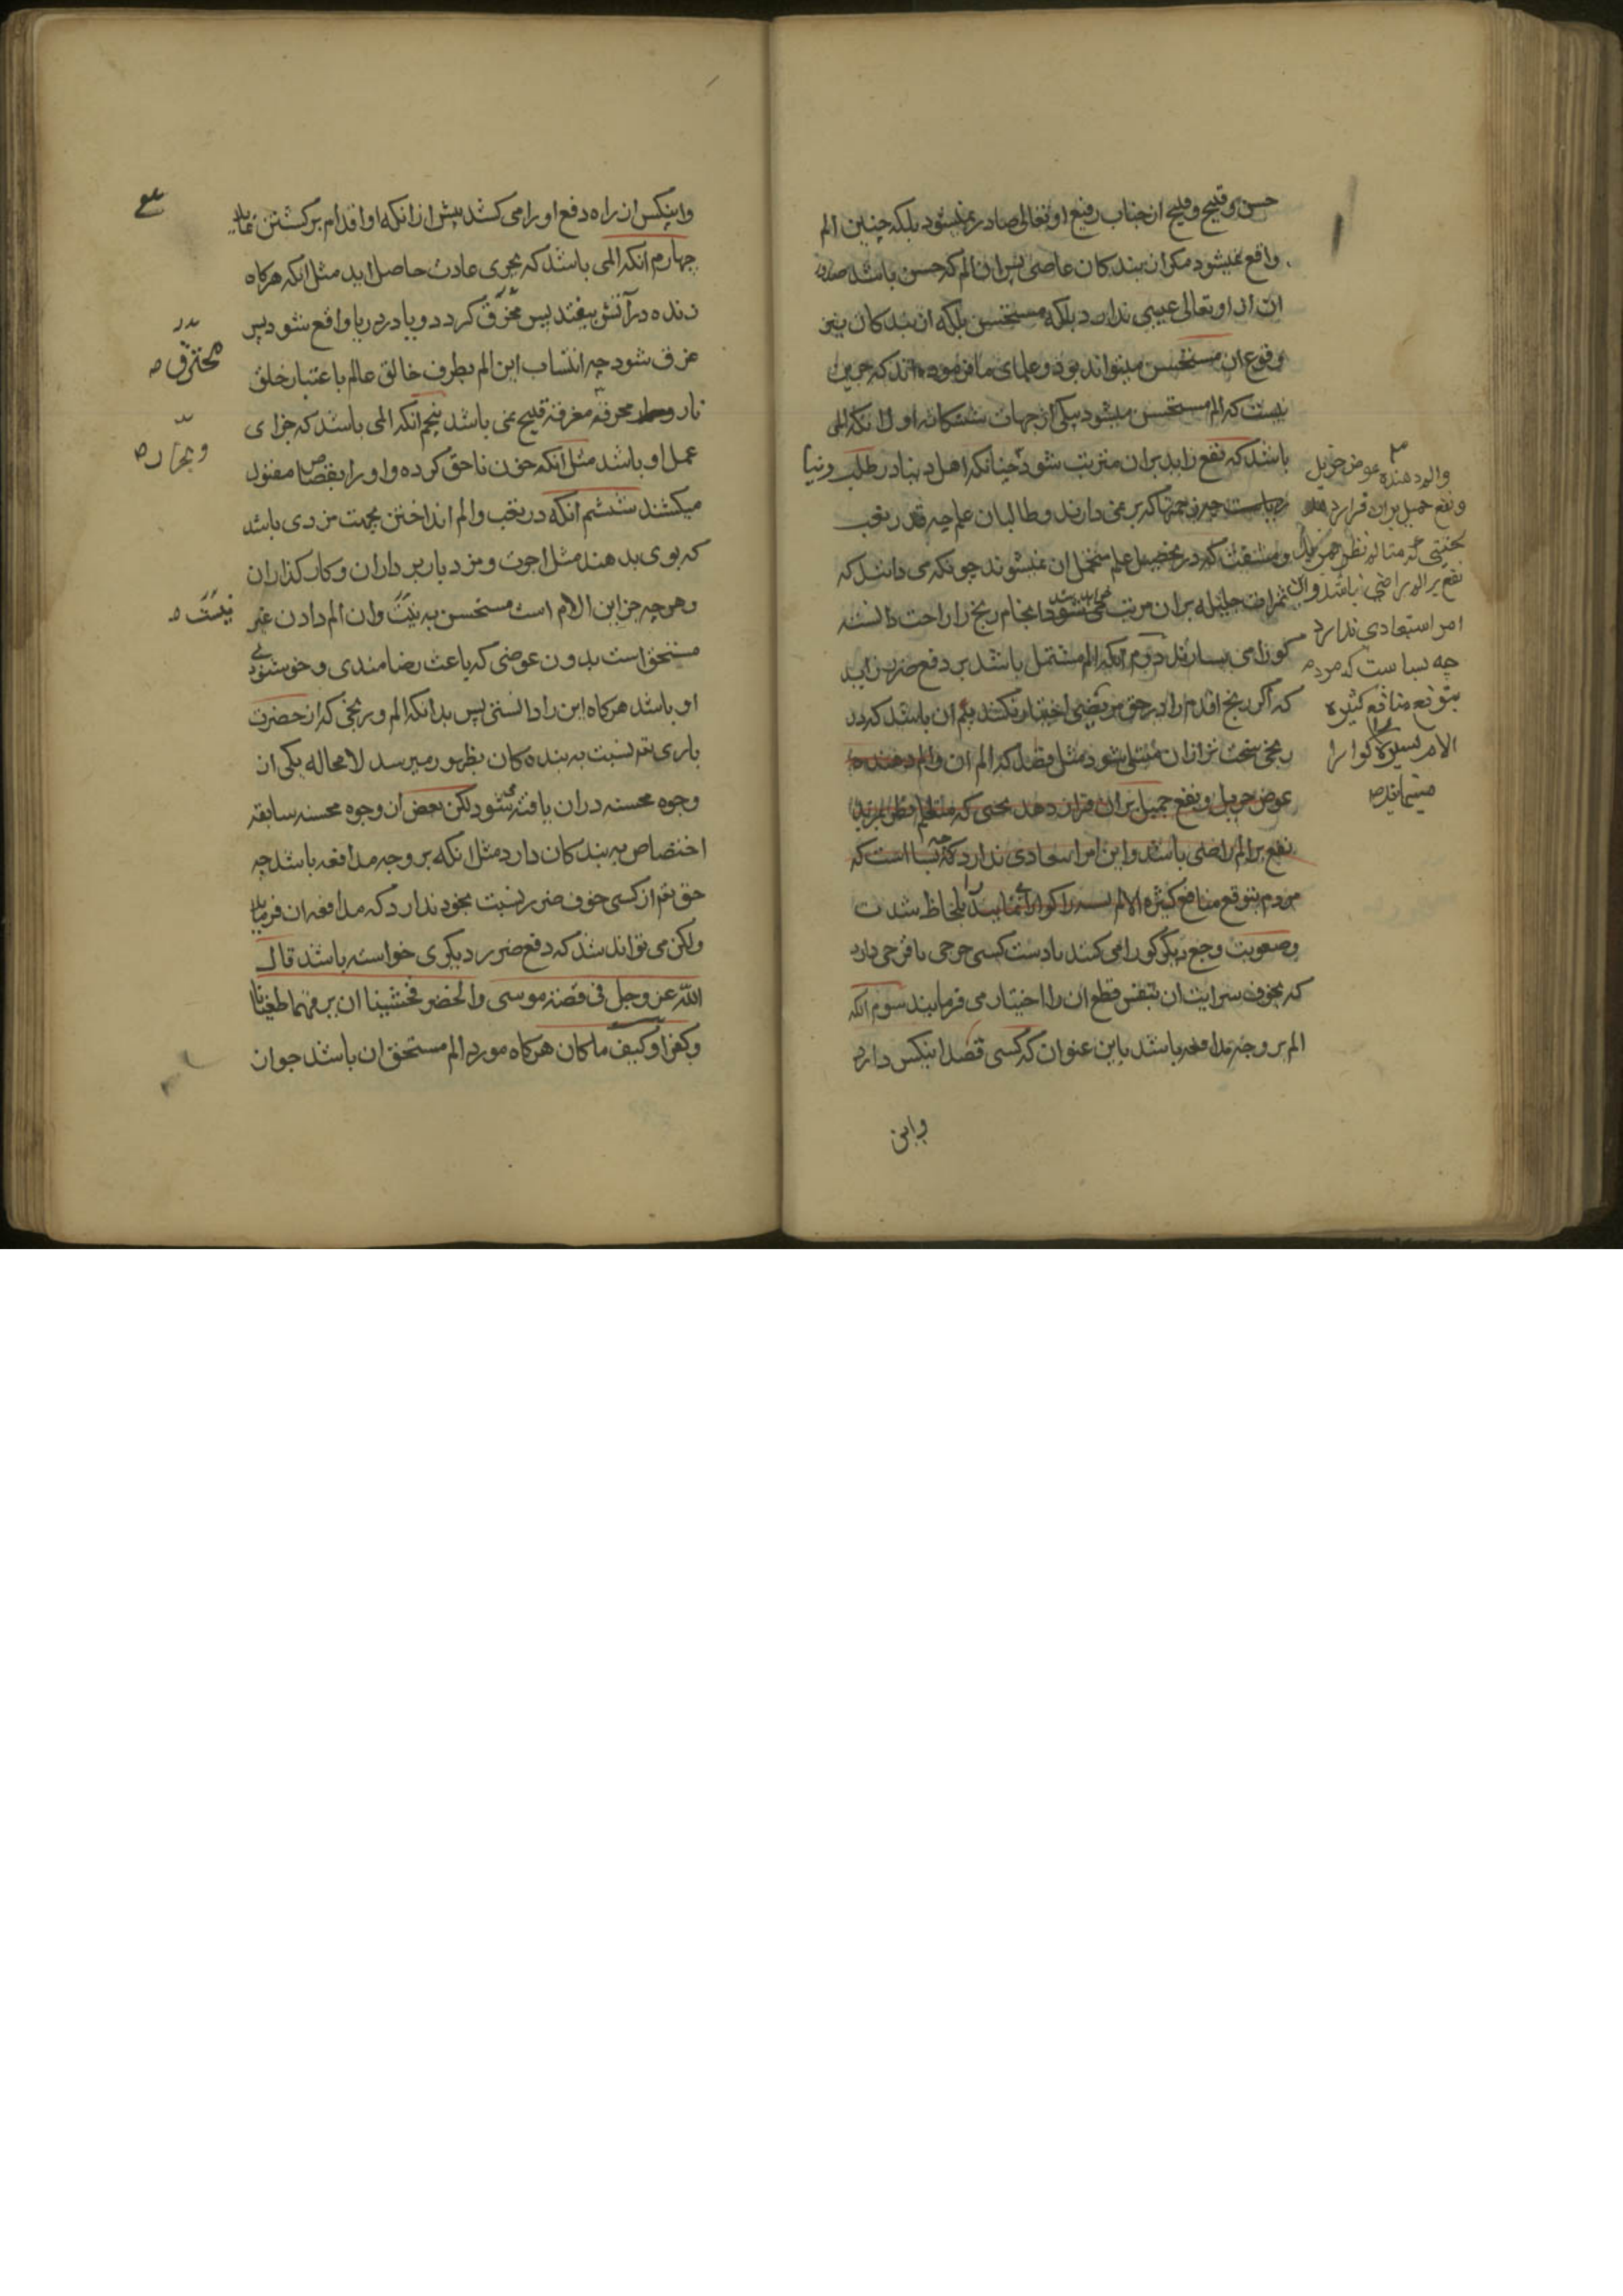 حسن و قبیح و قبیح از جناب رفیع او تعالی صادر نمیشود بلکه چنین الم
واقع نمیشود مکر از بندکان عاصی پس ان الم که حسن باشد صدور
ان از او تعالی عیبی ندارد بلکه مستحسن بلکه از بندکان نیز
وقوع ان مستحسن میتواند بود و علمای ما فرموده اند که جز این
نیست که الم مستحسن میشود بیکی از جهات ششکانه اول انکه المی
باشد که نفع زاید بران مترتب شود چنانکه اهل دنیا در طلب دنیا
ریاست چه زحمتها که بر نمی دارند و طالبان علم چه قدر تعب
و مشقت که در تحصیل علم متحمل ان نمیشوند چونکه می دانند که
ثمرات جلیله بران مرتب می شود و انجام رنج را راحت دانسته
کوارا می شمارند دوم آنکه الم مشتمل باشد بر دفع ضرر زاید
که اکر رنج اقدم را در حق مریضی اختیار نکنند بیم ان باشد که در
رنجی سخت تر از ان مبتلی شود مثل فصد که الم ان والم دهنده
عوض جزیل و نفع جمیل بران قرار دهد بحیثی که متالم نظر بمزید
نفع بر الم راضی باشد و این امر استبعادی ندارد که چه بسا است که
مردم بتوقع منافع کثیره الالم یسیره را کوارا می نمایند بلحاظ شدت
وصعوبت وجع دیکر کوارا می کنند یا دست کسی جرحی یا قرحی دارد
که بخوف سرایت ان بنفس قطع ان را اختیار می فرمایند سوم انکه
الم بر وجه مدافعه باشد باین عنوان که کسی قصد اینکس دارد
واین
والم دهنده عوض جزیل
و نفع جمیل بران قرار دهد
بحیثی که متالم نظر بمزید
نفع بر الم راضی باشد و این
امر استبعادی ندارد
چه بسا است که مردم
بتوقع منافع کثیره
الام یسیره را کوارا
مینمایند ص
واینکس از راه دفع او را می کشد پیش از انکه او اقدام بر کشتن نماید
چهارم انکه المی باشد که بمجری عادت حاصل اید مثل انکه هرکاه
زنده در آتش بیفتد پس محرق کردد و یا در دریا واقع شود پس
غرق شود چه انتساب این الم بطرف خالق عالم باعتبار خلق
نار محرقه مغرقه قبیح نمی باشد پنجم انکه المی باشد که جزای
عمل او باشد مثل آنکه خون ناحق کرده و او را بقصاص مقتول
میکشند ششم انکه در تعب والم انداختن بجهت مزدی باشد
که بوی بدهند مثل اجرت و مزد باربرداران و کارکذاران
وهرچه جز این الام است مستحسن به نیست وان الم دادن غیر
مستحق است بدون عوضی که باعث رضامندی و خوشنودی
او باشد هرکاه این را دانستی پس بدانکه الم و رنجی که از حضرت
باری تم نسبت به بنده کان بظهور میرسد لا محاله یکی از
وجوه محسنه دران یافته میشود لکن بعض ان وجوه محسنه سابقه
اختصاص به بندکان دارد مثل انکه بر وجه مدافعه باشد چه
حق تم از کسی خوف ضرر نسبت بخود ندارد که مدافعه ان فرماید
ولکن می تواند شد که دفع ضرر دیکری خواسته باشد قال
الله عز وجل فی قصة موسی والخضر فخشینا ان یرهقهما طغیانا
وکفرا وکیف ما کان هرکاه مورد الم مستحق ان باشد جواز
محترق ص
وبحار ص
نیست ص